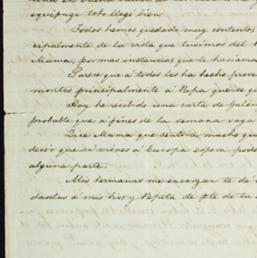 equipage todo llegó bien
Todos hemos quedado muy contentos
cipalmente de la rada que tuvimos del
Mama, por mas instancias que le haciamos
Parece que a todos les ha hecho prove
montes principalmente a Papa que se qu
Hoy he recibido una carta de Galan
probable que a fines de la semana vaya
Dice Mama que sentiria mucho qu
decir que si vienes a Europa espera pod
alguna parte.
Mis hermanas me encargan te dé
dandolas á mis tios y Pepita de pte de tu